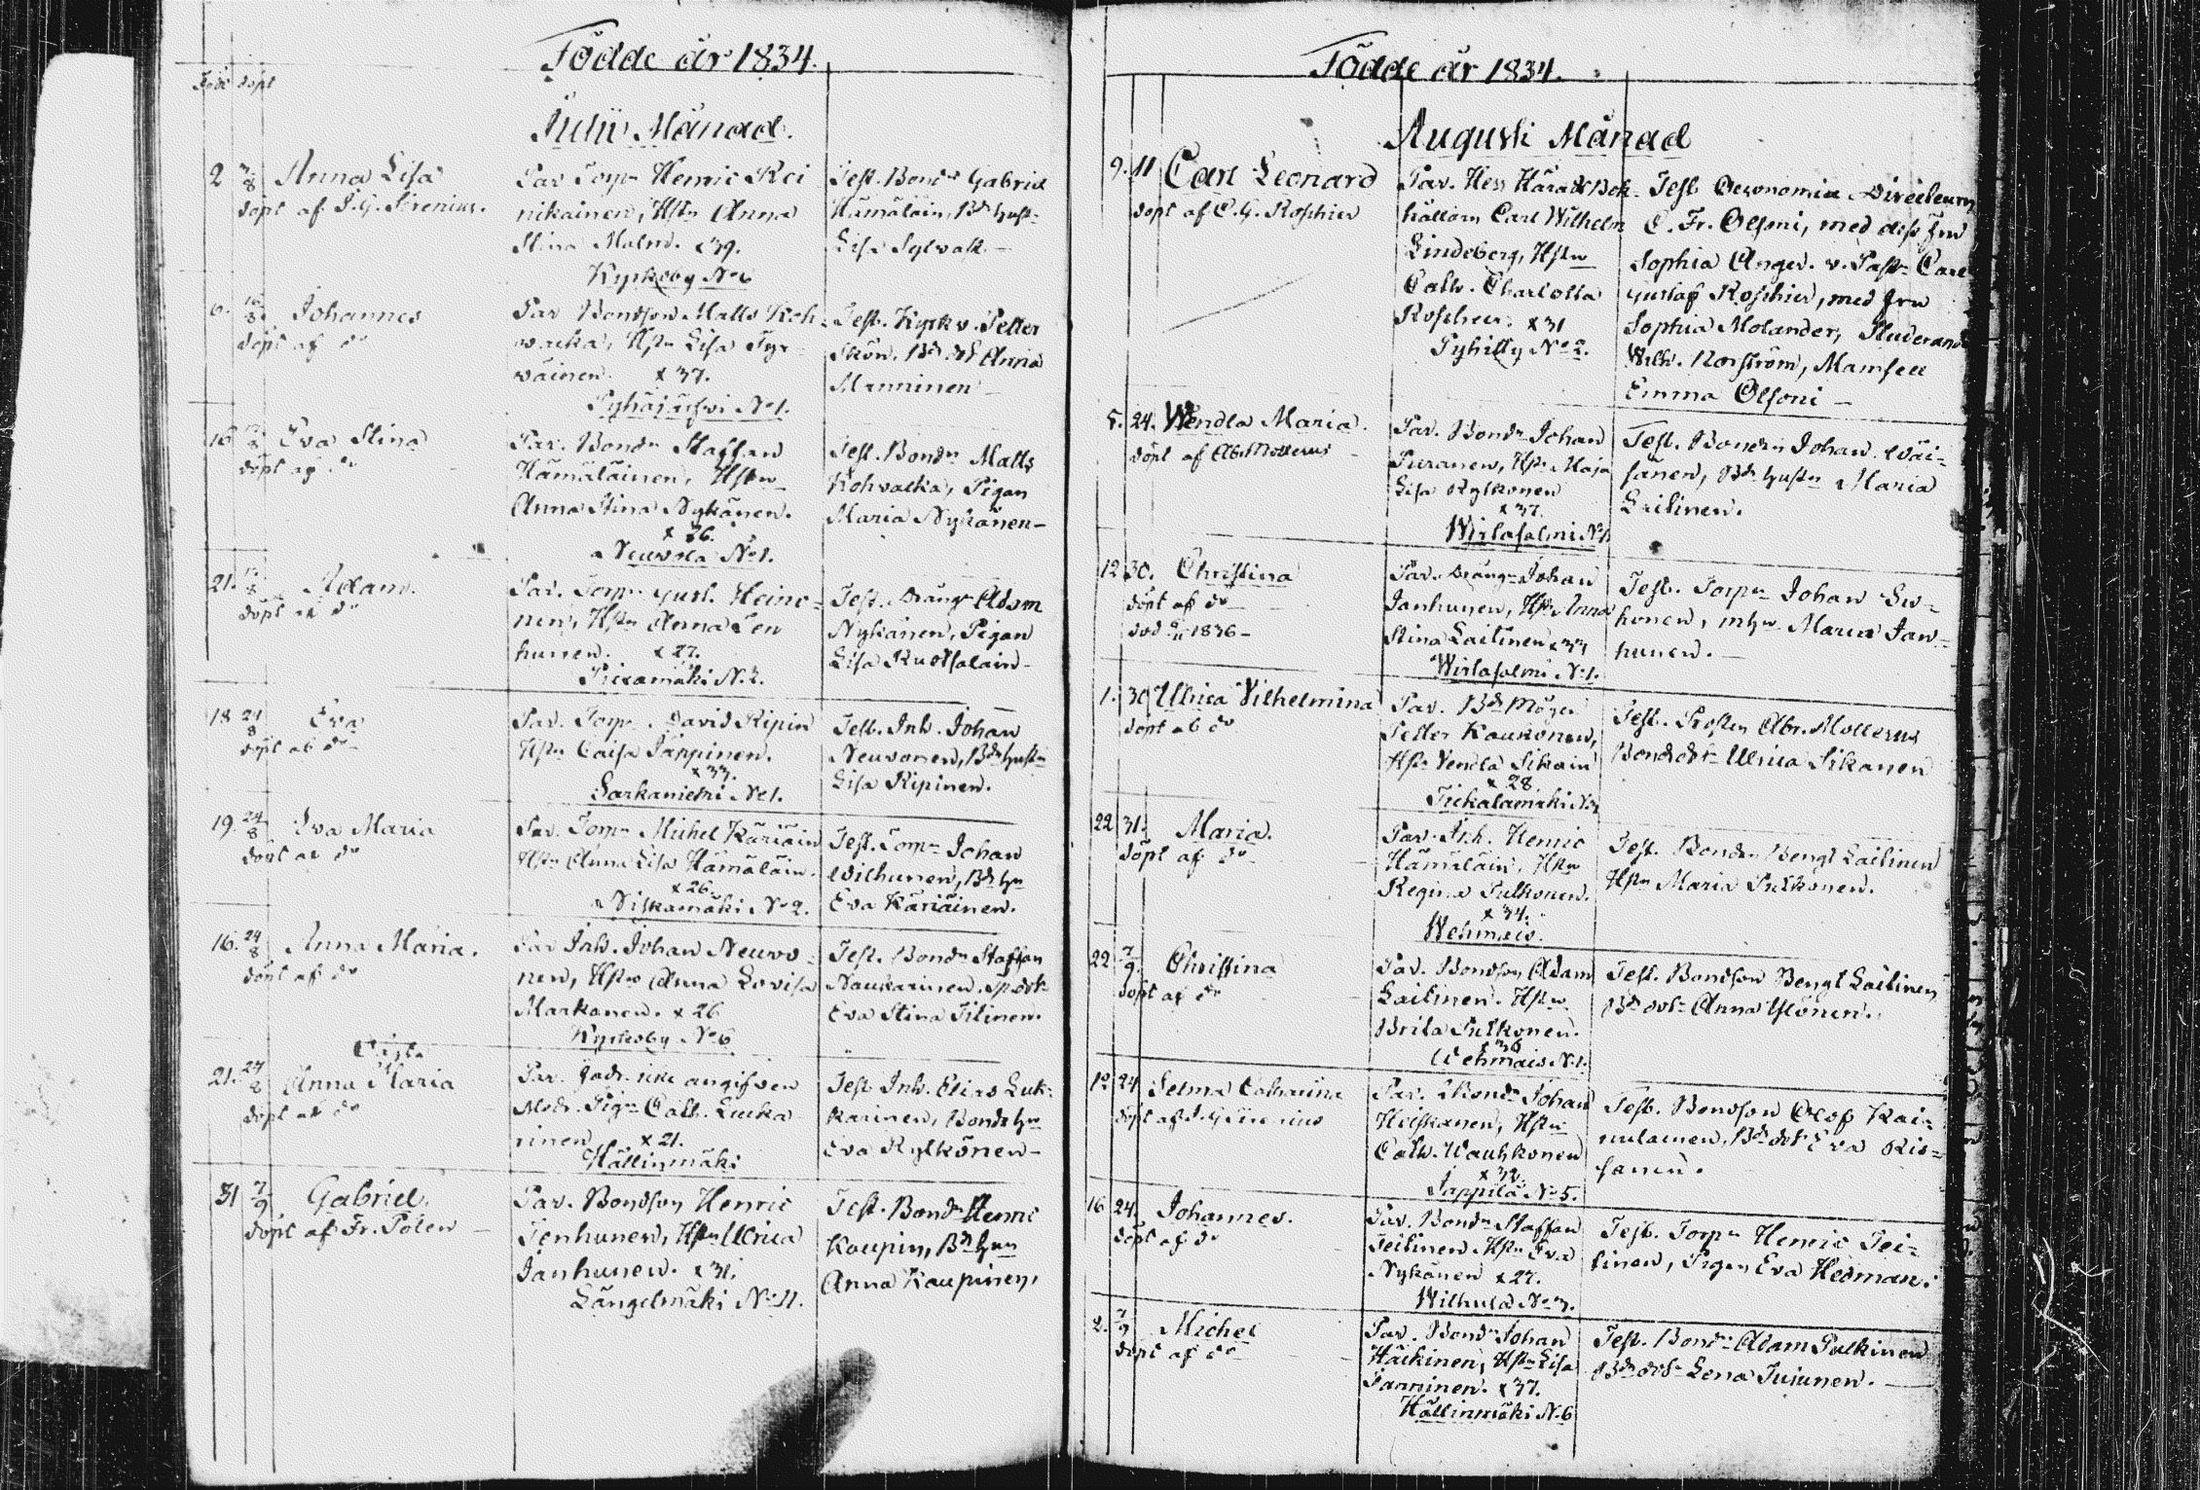 Födde år 1834.
Född döpt
Julii Månad.
2 3/8 Anna Lisa
döpt af J. G. Sirenius.
Par Torpn Henric Rei
nikainen, Hstn Anna
Stina Malm. x 39.
Kyrkoby No 6
Test. Bondn Gabriel
Hämäläin, Bd hust
Lisa Sylvast
6. 10/8 Johannes
döpt af do
Par Bondson Matts Koh
wacka, Hstn Lisa Tyr
väinen. x 37.
Pyhäjärfvi No 1.
Test. Kyrkv. Petter
Skön, Bd dotr Anna
Manninen
16 17/8 Eva Stina
döpt af do
Par. Bondn Staffan
Hämäläinen, Hstn
Anna Stina Nykänen.
x 36.
Neuvola No 1.
Test. Bondn Matts
Kohvacka, Pigan
Maria Nykänen
21. 17/8 Adam.
döpt af do
Par. Torpn Gust. Heino
nen, Hstn Anna Ten
hunen. x 27.
Pieksämäki N. 2.
Test. Drängn Adam
Nykänen, Pigan
Lisa Ruotsalain
18 24/8 Eva
döpt af do
Par. Torpn David Ripin
Hstn Caisa Jäppinen.
x 33.
Sarkaniemi No 1.
Test. Inh. Johan
Neuvonen, Bd hustn
Lisa Ripinen.
19. 24/8 Eva Maria
döpt af do
Par. Torpn Michel Käriäin
Hstn Anna Lisa Hämäläin.
x 26.
Niskamäki No 2.
Test. Torpn Johan
Wilhunen, Bd hn
Eva Käriäinen.
16. 24/8 Anna Maria.
döpt af do
Par Inh. Johan Neuvo
nen, Hstn Anna Lovisa
Markanen. x 26
Kyrkoby No 6
Test. Bondn Staffan
Naukarinen
Eva Stina Titinen.
21. 24/8 Anna Maria
döpt af do
Par. fadr. icke angifven
Modr. Pign Cath. Lucka
rinen x 21.
Hällinmäki
Test Inh. Elias Luk
karinen, Bonde hn
Eva Rylkönen
31 7/9 Gabriel.
döpt af Fr. Polen
Par. Bondson Henric
Tenhunen, Hstn Ulrica
Janhunen. x 31.
Längelmäki No 11.
Test. Bondn Henric
Kaupin, Bd hn
Anna Kaupinen.
Födde år 1834.
Augusti Månad
9. 11 Carl Leonard
döpt af C. G. Roschier
Par. Herr Härads Bok
hållarn Carl Wilhelm
Lindeberg, Hstn
Cath. Charlotta
Roschier. x 31
Pyhitty No 2.
Test Oeconomie Directeurn
C. Fr. Olsoni, med dess fru
Sophia Anger. v. Pastn Carl
Gustaf Roschier, med fru
Sophia Molander, Studerand
Wilh. Norström, Mamsell
Emma Olsoni
5. 24. Wendla Maria.
döpt af Abr. Mollerus
Par. Bondn Johan
Puranen, Hstn Maja
Lisa Rylkonen
x 37.
Wirtasalmi No 1
Test. Bondn Johan Wäi=
sänen, Bd hustn Maria
Laitinen.
12 30. Christina
döpt af do
död 1836
Par. Drängn Johan
Janhunen, Hstn Anna
Stina Laitinen x 33
Wirtasalmi No 1.
Test. Torpn Johan Su=
honen, Maria Jan=
hunen.
1. 30 Ulrica Wilhelmina
döpt af do
Par. Bd Mågen
Petter Kaukonen,
Hstn Vendla Sikain
x 28.
Tickalamäki
Test. Prosten Abr. Mollerus
Bonde dotr Ulrica Sikanen
22 31. Maria.
döpt af do
Par. Inh. Henric
Hämäläin, Hstn
Regina Pulkonen.
x 34.
Wehmais.
Test. Bonden Bengt Laitinen
Hstn Maria Pulkonen.
22 7/9 Christina
döpt af do
Par. Bondson Adam
Laitinen. Hstn
Brita Pulkonen.
x 36
Wehmais No 1.
Test. Bondson Bengt Laitinen
Bd dotr Anna Ylönen.
12 24 Selma Catharina
döpt af J. G. Sirenius
Par. Bondn Johan
Heiskanen, Hstn
Cath. Wauhkonen
x 32.
Jäppilä No 5.
Test. Bondson Olof Kai=
nulainen, Bd dotr Eva Ris=
sanen.
16 24. Johannes.
döpt af do
Par. Bondn Staffan
Teitinen Hstn Eva
Nykänen x 27.
Wilhula No 3.
Test. Torpn Henric Tei=
tinen, Pigan Eva Hedman.
2. 7/9 Michel
döpt af do
Par. Bondn Johan
Häckinen, Hstn Lisa
Parninen. x 37.
Hällinmäki N. 6
Test. Bondn Adam Pulkinen
Bd dotr Lena Tujunen.